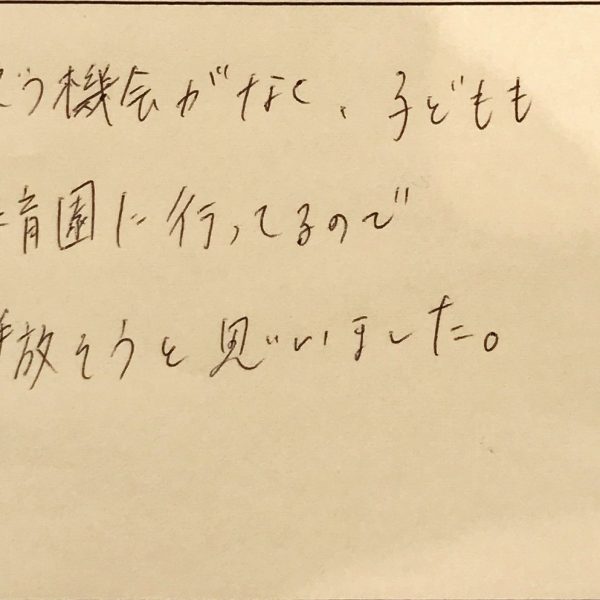 う機会がなく、子どもも
育園に行ってるので
放そうと思いました。